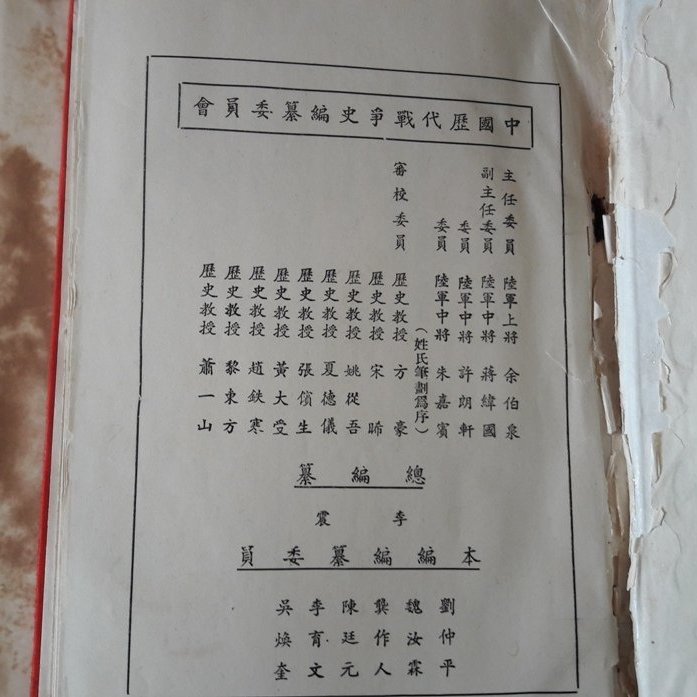 中國歷代戰爭史編纂委員會
主任委員 陸軍上將 余伯泉
副主任委員 陸軍中將 蔣緯國
委員 陸軍中將 許朗軒
委員 陸軍中將 朱嘉賓
(姓氏筆劃為序)
審校委員 歷史教授 方豪
歷史教授 宋晞
歷史教授 姚從吾
歷史教授 夏德儀
歷史教授 張儐生
歷史教授 黃大受
歷史教授 趙鉄寒
歷史教授 黎東方
歷史教授 蕭一山
總編纂
李震
本編編纂委員
劉仲平
魏汝霖
龔作人
陳廷元
李育文
吳煥奎